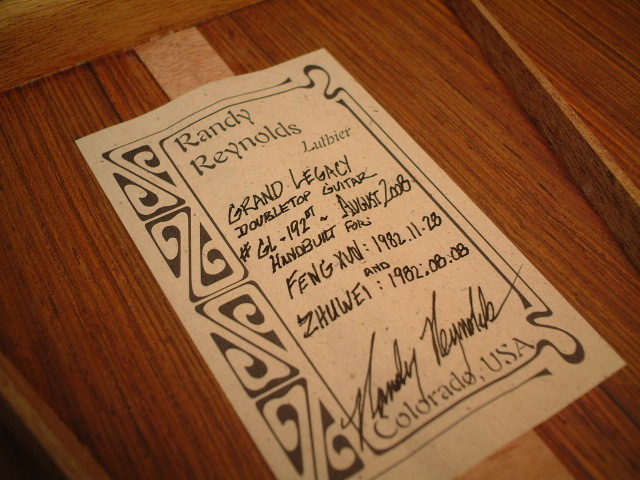 Randy
Reynolds
Luthier
GRAND LEGACY
DOUBLETOP GUITAR
# GL-192DT ~ AUGUST 2008
HANDBUILT FOR:
FENG XUN: 1982.11.28
AND
ZHUWEI: 1982.08.08
Randy Reynolds
Colorado, USA